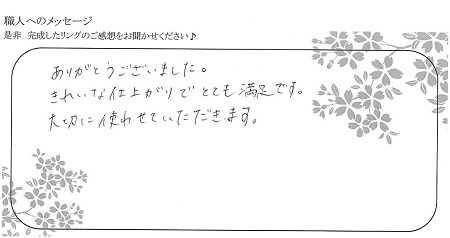 職人へのメッセージ
是非 完成したリングのご感想をお聞かせください♪
ありがとうございました。
きれいな仕上がりでとても満足です。
大切に使わせていただきます。